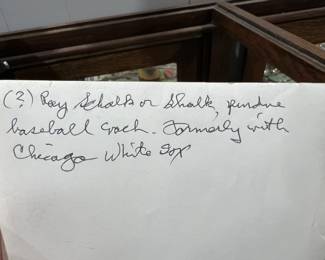 (?) Ray Schalk or Shalk, purdue
baseball coach. Formerly with
Chicago White Sox